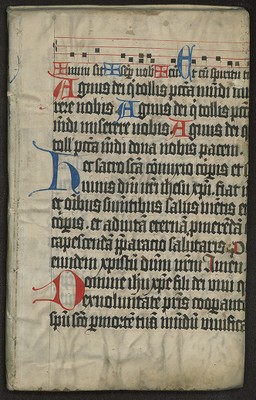 Agnus dei q tollis pcca mūdi mi
rere nobis Agnus dei q tollis pcca
mūdi miserere nobis Agnus dei q
toll pcca mūdi dona nobis pacem.
Hec sacro scā cōmixtio corpis et s
dni nri ihesu xpi. fiat
et oībus sumentibus salus mētis et
corpis. et ad vitā eternā
capescendā pparatio salutaris. P
eundem xpistū dnm nrm Amen.
Domine ihu xpe fili dei vivi q
ex voluntate pris cooperante
spū scō p mortē tuā mūdū vivifica